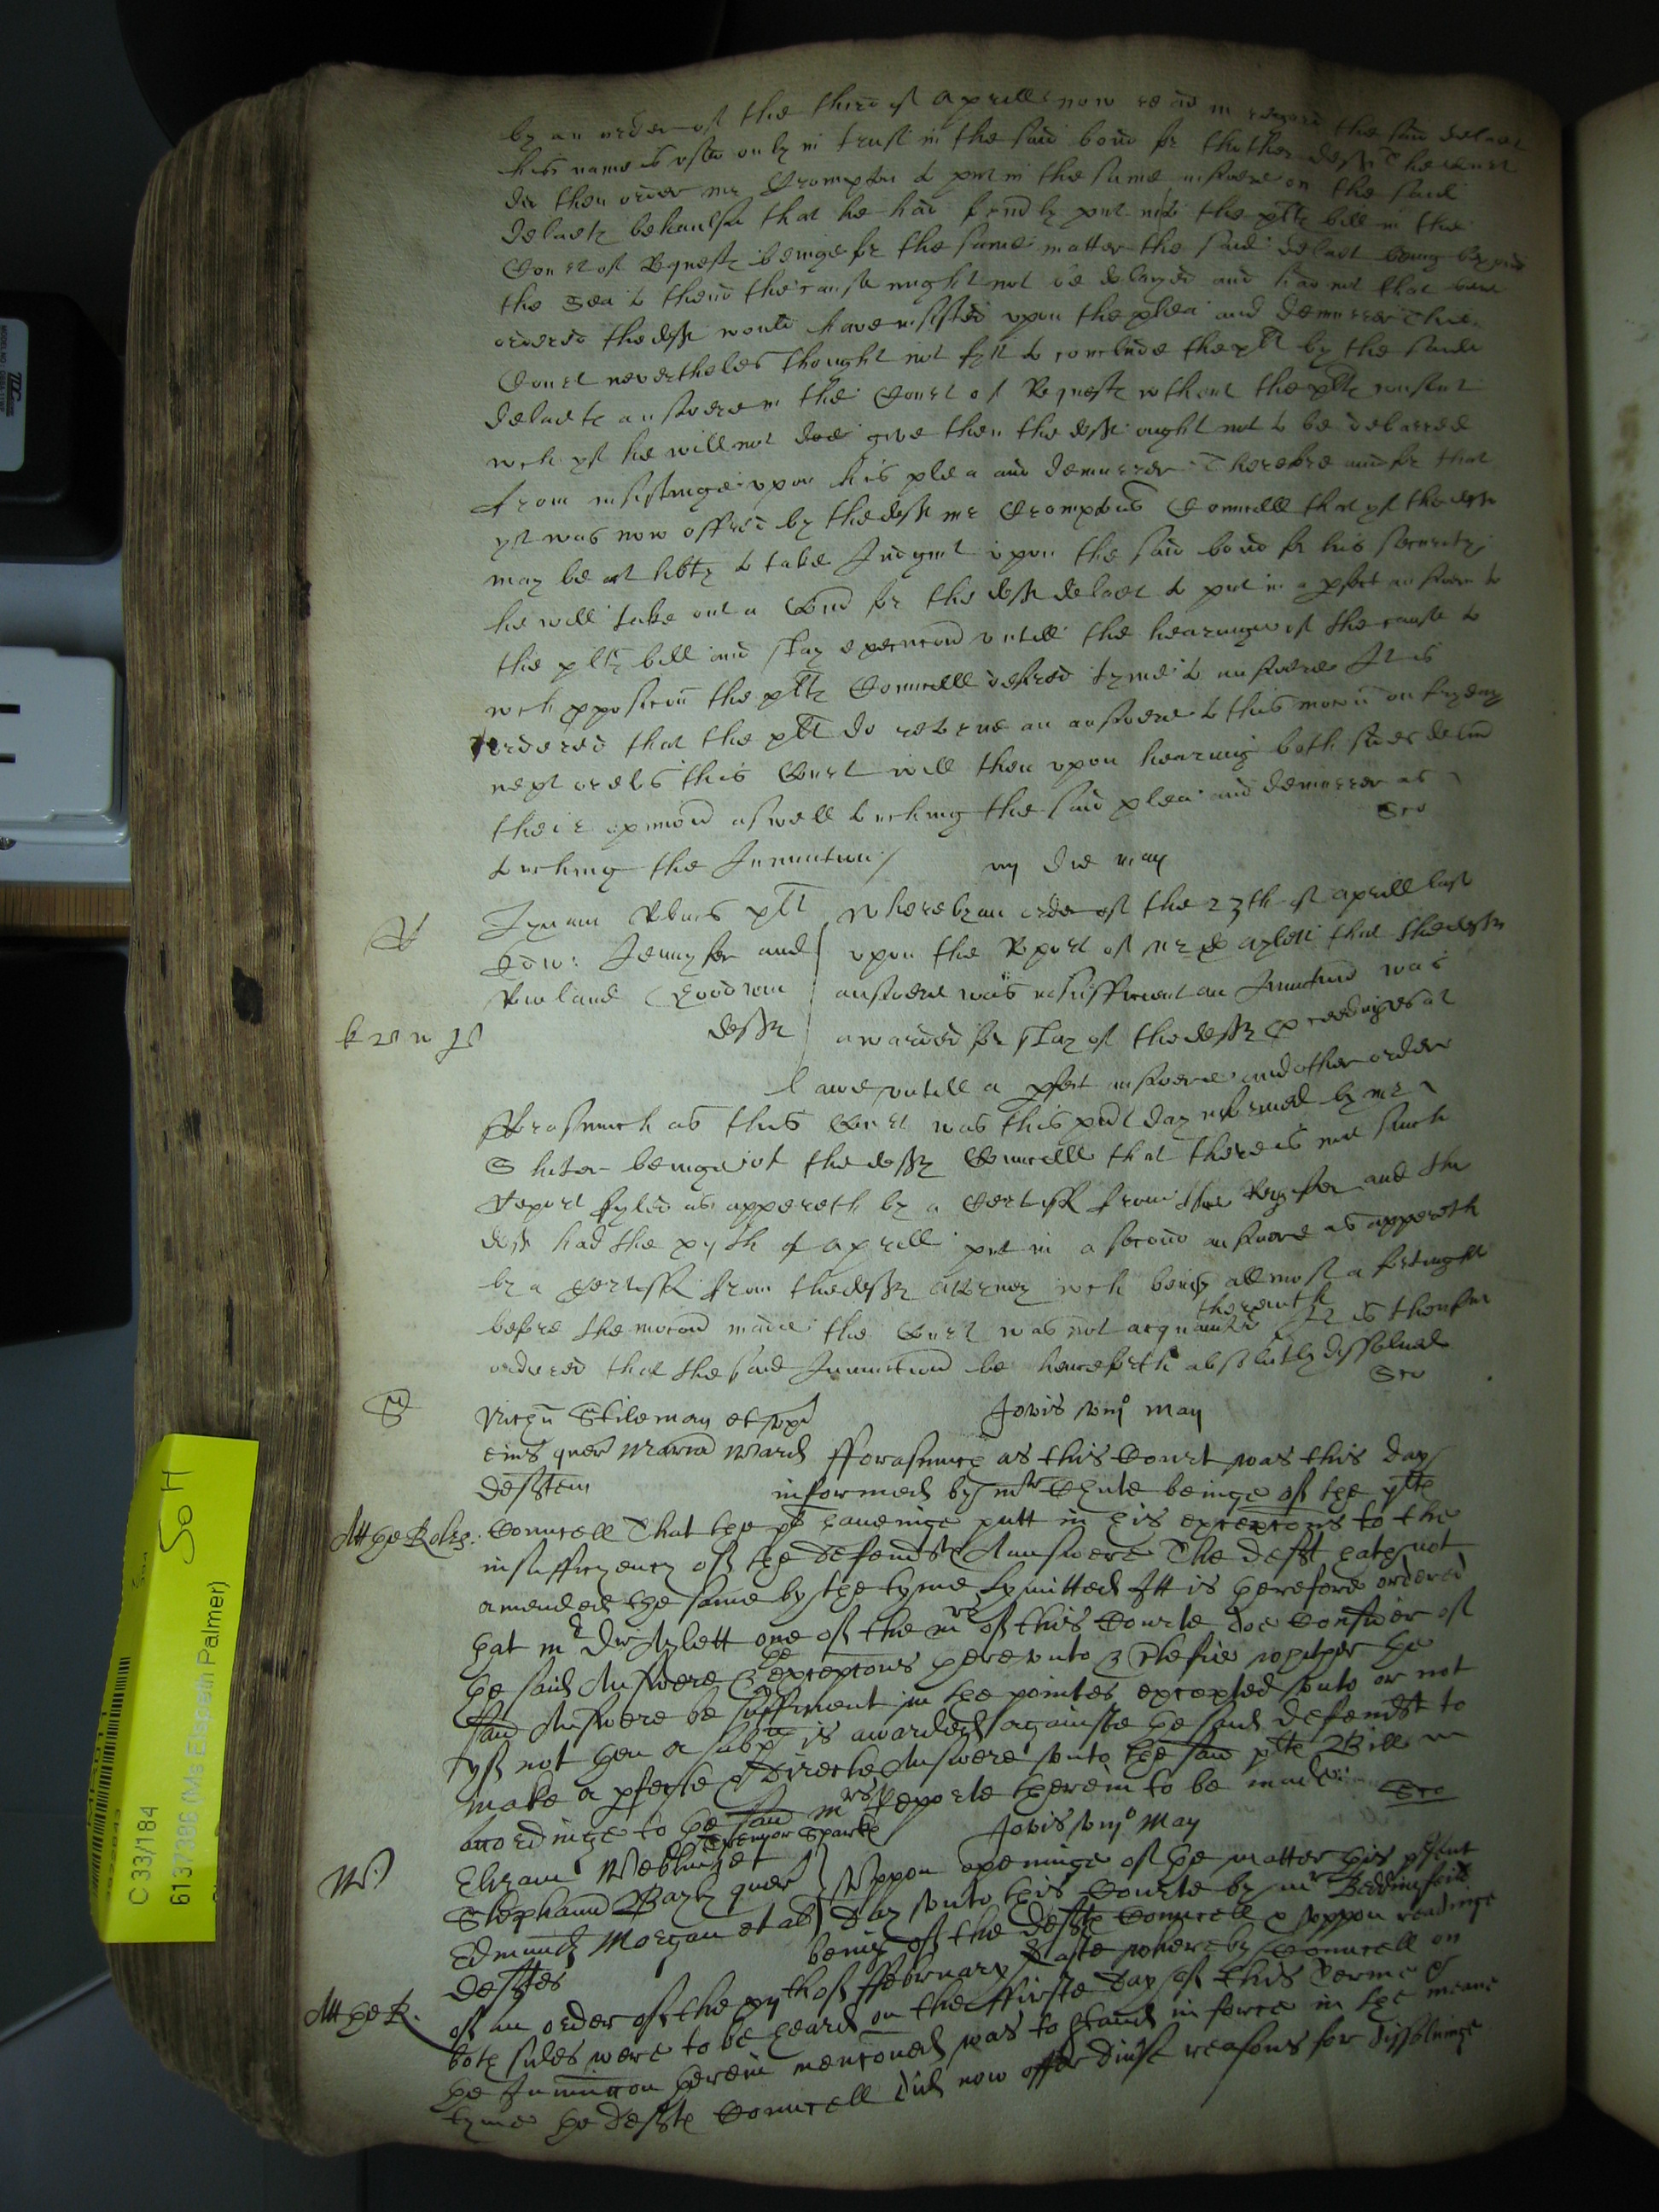 by an order of the third of Aprill now read in regard the said delaet
his name is used only in trust in the said bond for thother defft The Court
did then order mr Crompton to put in the same answere on the said
delaetz behaulfe that he had fondly put into the pltz bill in the
Court of Requestz beinge for the same matter the said delaet being beyond
the Sea to thend the cause might not be delayed and had not that bene
ordered the defft would have insisted upon the plea and demurrer This
Court nevertheles thought not fytt to conclude the plt by the saide
delaetz answere in the Court of Requestz without the pltz consent
wch yf he will not doe give then the defft ought not to be debarred
from insistinge upon his plea and demurrer Therefore and for that
yt was now offred by the defft mr Cromptons Councell that yf the defft
may be at libty to take Judgmt upon the said bond for his security
he will take out a Comd for the defft delaet to put in a pfect answere to
the pltz bill and stay execucon untill the hearinge of the cause to
wch pposicon the pltz Councell desired tyme to answere It is
ordered that the plt do retorne an answere to this mocon on fryday
next or els this Court will then upon hearing both sides deliver
their opinion aswell touching the said plea and demurrer as
touching the Injunction /
vij die may
plt Whereby an order of the 23th of Aprill last
Edw: Jennyfer and upon the Report of mr D Aylett that the defftz
Rowland Goodwin answere was insufficient an Injunction was
defftz awarded for stay of the defftz pceedinges at
lawe untill a pfect answere and other order
fforasmuch as this Court was this psent day informed by mr
being of the defftz Councell that there is noe such
Report fyled as appereth by a Certiff from the Register and the
defft had the xjth of Aprill put in a second answere as appereth
by a Certiff from the defftz attorney wch being allmost a fortnight
before the mocon made the Court was not acquainted therewth It is therefore
ordered that the said Injunction be henceforth absolutely dissolved
S
Stileman et uxor Jovis viijo May
eius quer Maria Ward fforasmuch as this Court was this day
deften informed by mr Chute beinge of the pltz
Councell That the pl havinge putt in his excepcons to the
insufficyency of the defendtz Answere The defft hath not
amended the same by the tyme lymitted Itt is therefore ordered
that mr Dr Aylett one of the mrs of this Courte doe consider of
the said Answere & the excepcons thereunto & Certefie whether the
said Answere be sufficient in the pointes excepted unto or not
yf not then a subpa is awarded againste the said defendt to
make a pfecte & directe Answere unto the said pltz Bill
accordinge to the said mrs reporte therein to be made
W Jovis viijo May
Stephanu quer Uppon openinge of the matter this psent
Edmundu Morgan et al day unto this Courte by mr Beddingfeild
deftes being of the defftz Councell & uppon readinge
of an order of the xijth of ffebruary laste whereby Councell on
both sides were to be heard on the ffirste day of this Terme &
the Injunction therein mencioned was to stand in force in the meane
tyme the defftz Councell did now offer divse reasons for dissolvinge
C 33/184
6137396 (Ms Elspeth Palmer)
So H